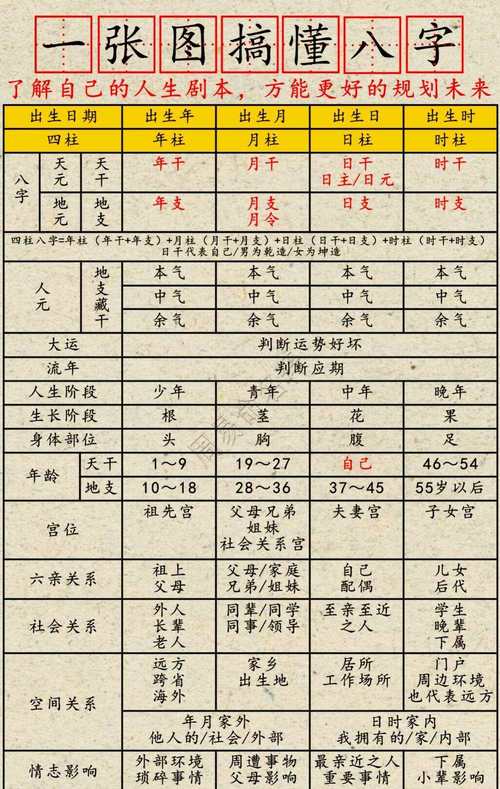 一张图搞懂八字
了解自己的人生剧本，方能更好的规划未来
出生日期 出生年 出生月 出生日 出生时
四柱 年柱 月柱 日柱 时柱
八字 天元 天干 年干 月干 日干 时干
日主/日元
地元 地支 年支 月支 日支 时支
月令
四柱八字=年柱（年干+年支）+月柱（月干+月支）+日柱（日干+日支）+时柱（时干+时支）
日干代表自己/男为乾造/女为坤造
人元 地支藏干 本气 本气 本气 本气
中气 中气 中气 中气
余气 余气 余气 余气
大运 判断运势好坏
流年 判断应期
人生阶段 少年 青年 中年 晚年
生长阶段 根 茎 花 果
身体部位 头 胸 腹 足
年龄 天干 1～9 19～27 自己 46～54
地支 10～18 28～36 37～45 55岁以后
宫位 祖先宫 父母兄弟 夫妻宫 子女宫
姐妹
社会关系宫
六亲关系 祖上 父母/家庭 自己 儿女
父母 兄弟/姐妹 配偶 后代
社会关系 外人 同辈/同学 至亲至近 学生
长辈 同事/领导 之人 晚辈
老人 下属
空间关系 远方 家乡 居所 门户
跨省 出生地 工作场所 周边环境
海外 也代表远方
年月家外 日时家内
他人的/社会/外部 我拥有的/家/内部
情志影响 外部环境 周遭事物 最亲近之人 下属
琐碎事情 父母影响 重要事情 小辈影响